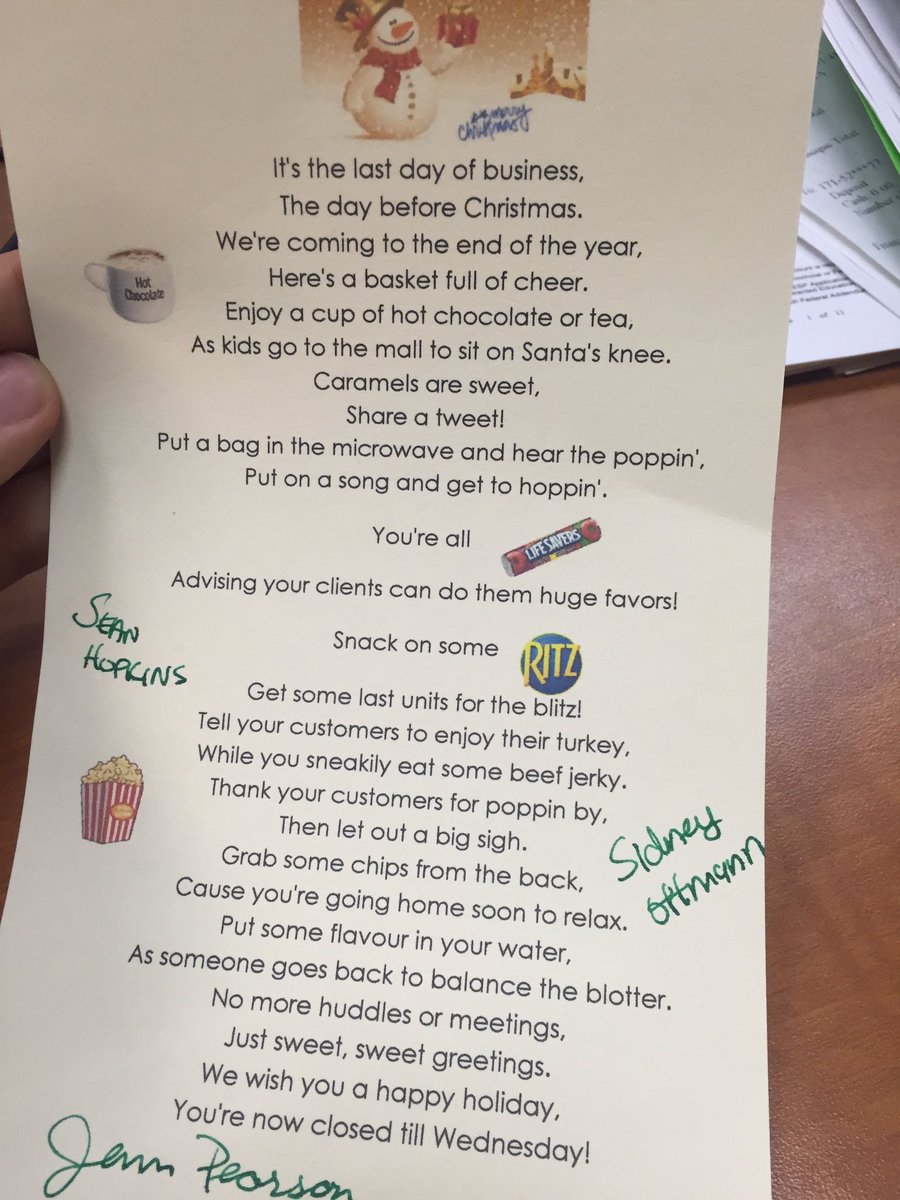 merry
christmas
It's the last day of business,
The day before Christmas.
We're coming to the end of the year,
Here's a basket full of cheer.
Hot
Chocolate
Enjoy a cup of hot chocolate or tea,
As kids go to the mall to sit on Santa's knee.
Caramels are sweet,
Share a tweet!
Put a bag in the microwave and hear the poppin',
Put on a song and get to hoppin'.
You're all LIFE SAVERS
Advising your clients can do them huge favors!
SEAN
HOPKINS
Snack on some RITZ
Get some last units for the blitz!
Tell your customers to enjoy their turkey,
While you sneakily eat some beef jerky.
Thank your customers for poppin by,
Then let out a big sigh.
Grab some chips from the back,
Cause you're going home soon to relax.
Sidney
Ottmann
Put some flavour in your water,
As someone goes back to balance the blotter.
No more huddles or meetings,
Just sweet, sweet greetings.
We wish you a happy holiday,
You're now closed till Wednesday!
Jenn Pearson
Total
Deposit
Cash 0.00
Number
1 of 11